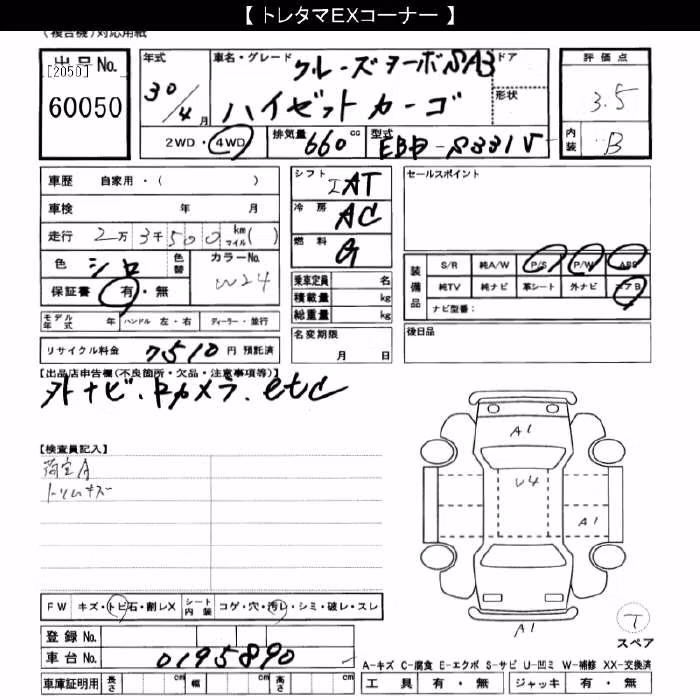 【 トレタマEXコーナー 】
(複合機)対応用紙
出品No.
[2050]
60050
年式
30/4月
車名・グレード
クルーズターボSAⅢ
ハイゼットカーゴ
ドア
形状
2WD・4WD
排気量 660cc
型式 EBD-S331V
評価点
3.5
内装 B
車歴 自家用・( )
車検 年 月
走行 2万3千500 km マイル( )
色 シロ 色替
カラーNo. W24
保証書 有・無
シフト IAT
冷房 AC
燃料 G
乗車定員 名
積載量 kg
総重量 kg
セールスポイント
装備品
S/R 純A/W P/S P/W ABS
純TV 純ナビ 革シート 外ナビ エアB
ナビ型番：
モデル年式 年 ハンドル 左・右 ディーラー・並行
名変期限
月 日
後日品
リサイクル料金 7510 円 預託済
【出品店申告欄(不良箇所・欠品・注意事項等)】
外ナビ.Bカメラ.etc
【検査員記入】
荷室A
トリムキズ
A1
W4
A1
A1
T
スペア
FW キズ・トビ石・割レX
シート内装 コゲ・穴・汚レ・シミ・破レ・スレ
登録No.
車台No. 0195890
A-キズ C-腐食 E-エクボ S-サビ U-凹ミ W-補修 XX-交換済
車庫証明用 長さ cm 幅 cm 高さ cm
工具 有・無 ジャッキ 有・無